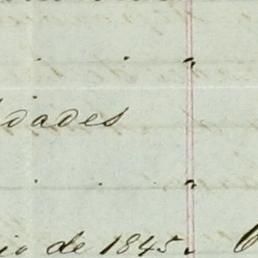 dades
io de 1845.